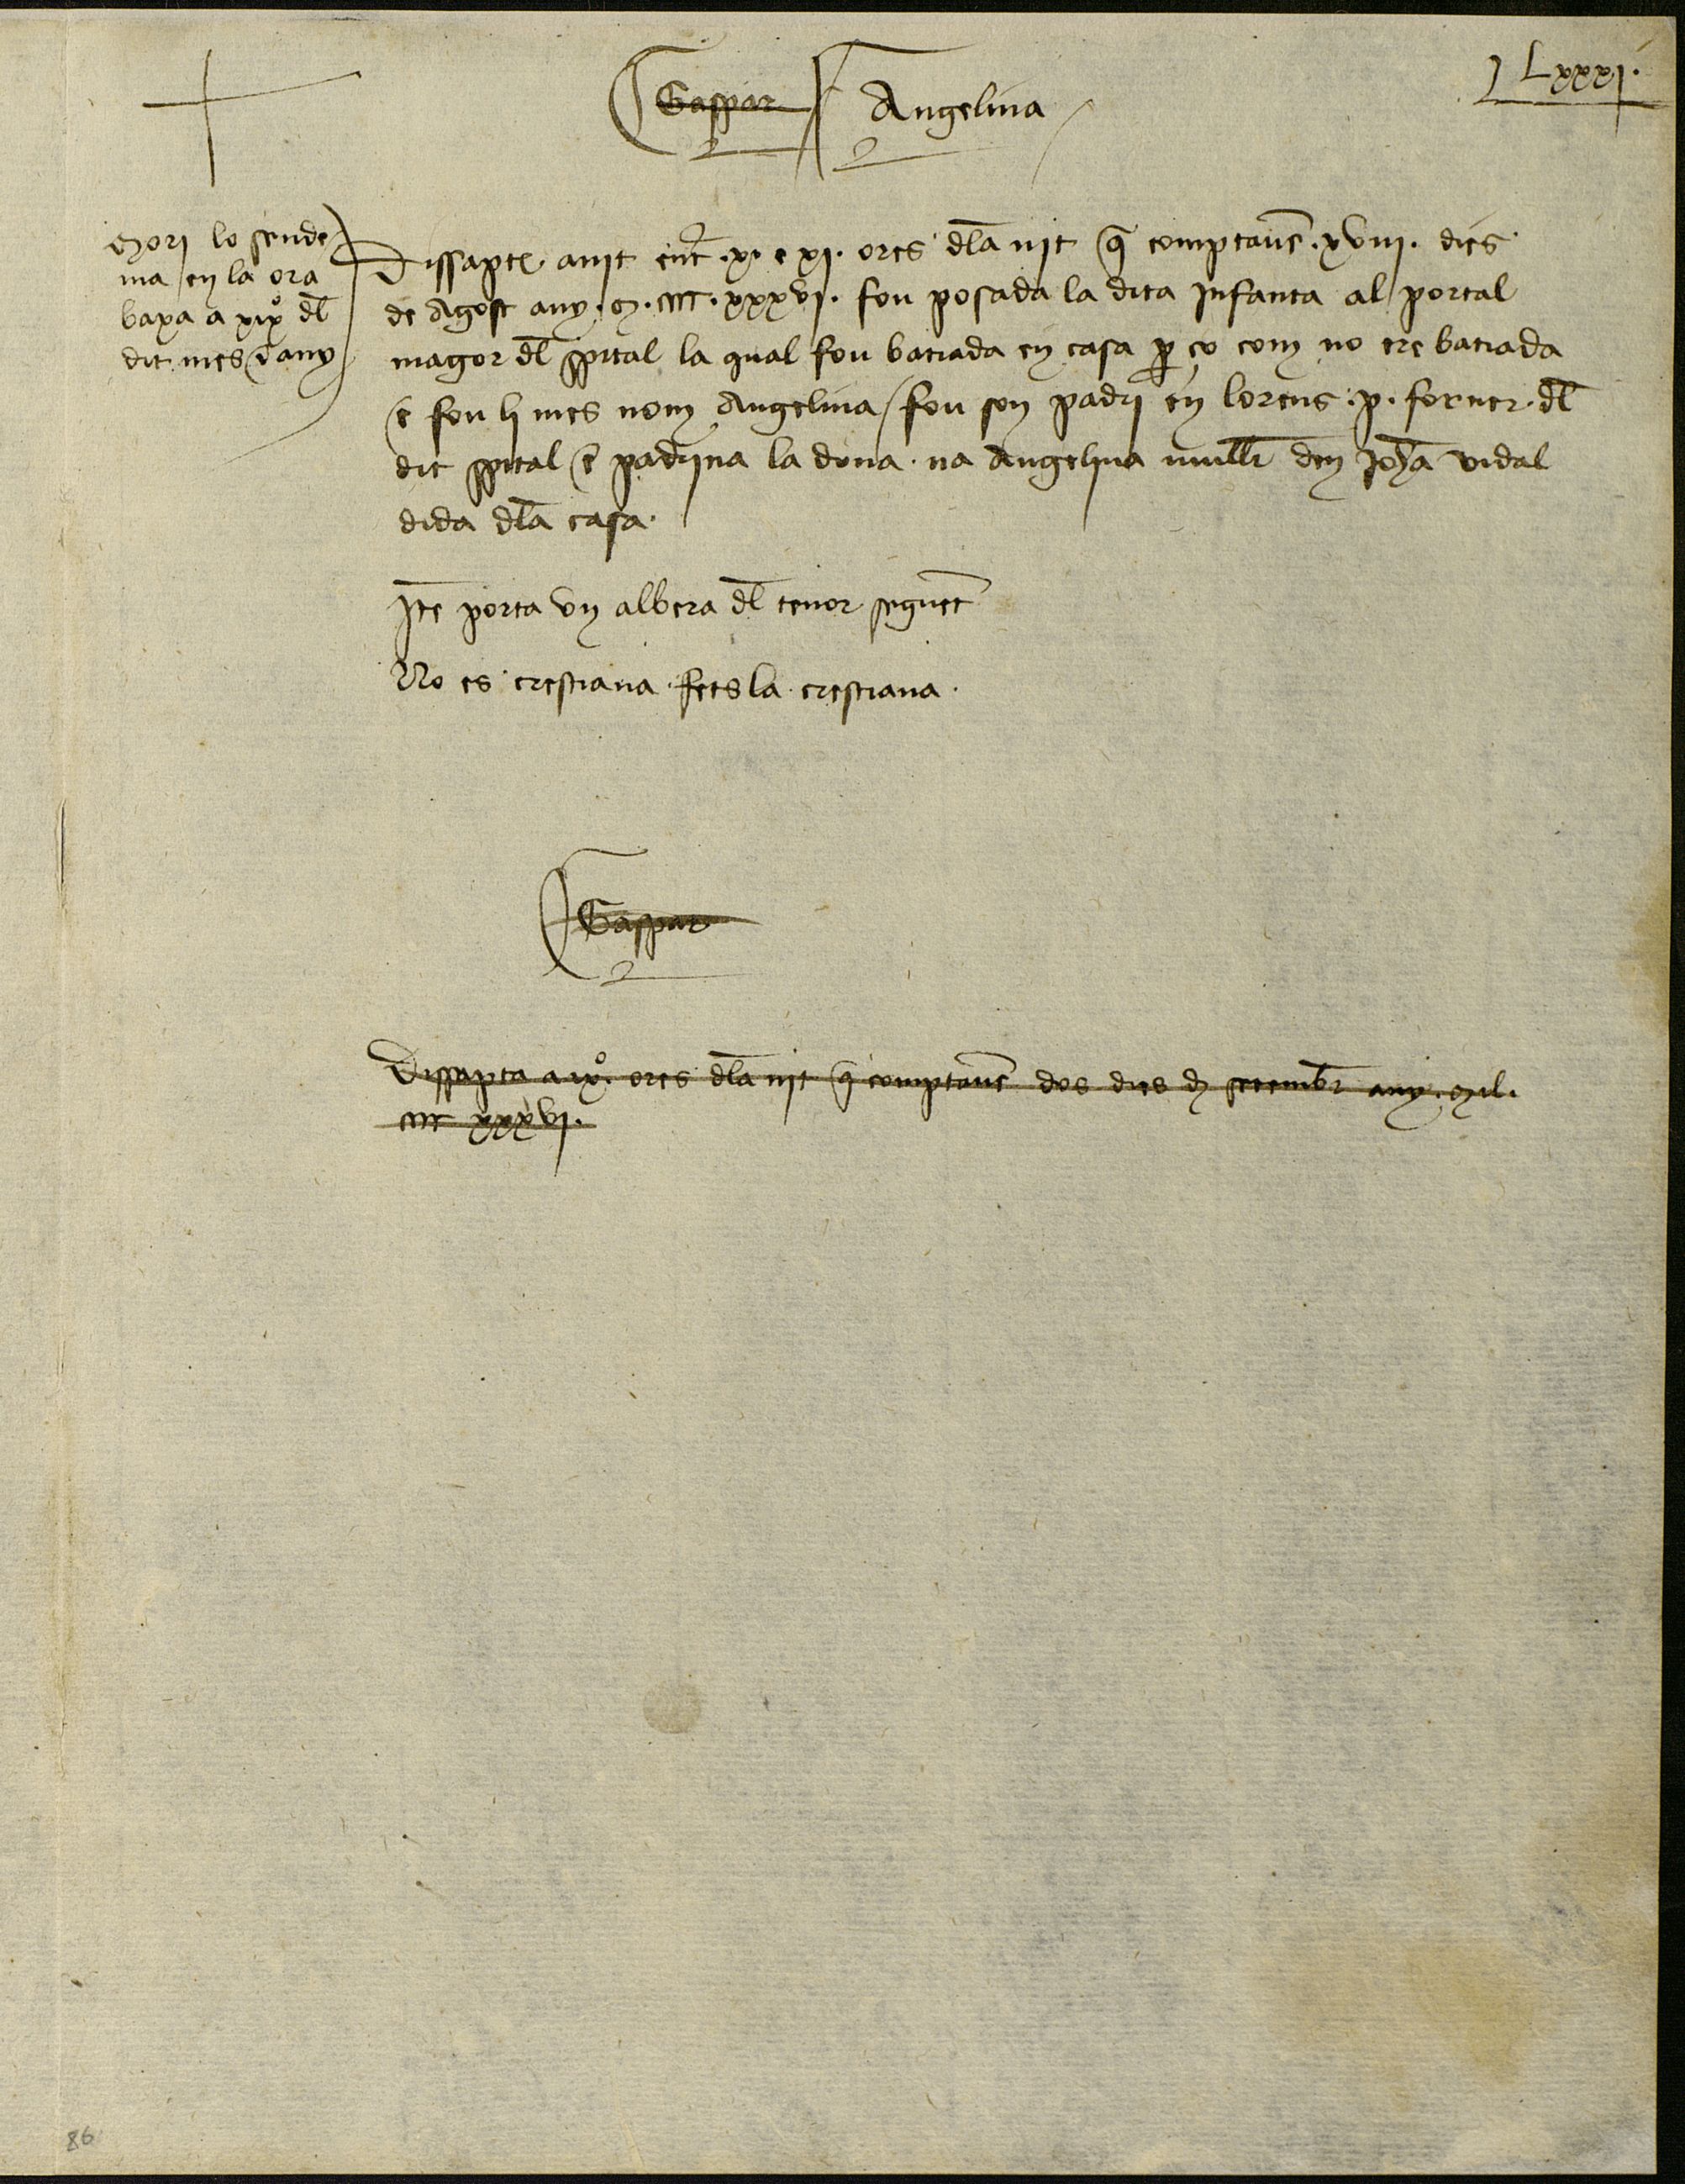 Lxxxj.
Gaspar Angelina
Mori lo sende
ma en la ora
baxa a xixº dl
dit mes e any
Dissapte anit entr .x. e xj. ores dla nit q comptauẽ .xviij. dies
de Agost any .M. cccc. xxxvj. fou posada la dita jnfanta al portal
magor dl spital la qual fou batiada en casa p ço com no ere batiada
e fou li mes nom Angelina / fou son padrj en lorens .p. forner dl
dit spital e padrjna la dona na Angelina mullr den johã vidal
dida dla casa.
jte porta vn albera dl tenor seguet
No es crestiana fets la crestiana.
Gaspar
Dissapta a ixº. ores dla nit q comptauẽ dos dies d setembr any. Mil.
cccc xxxvj.
86